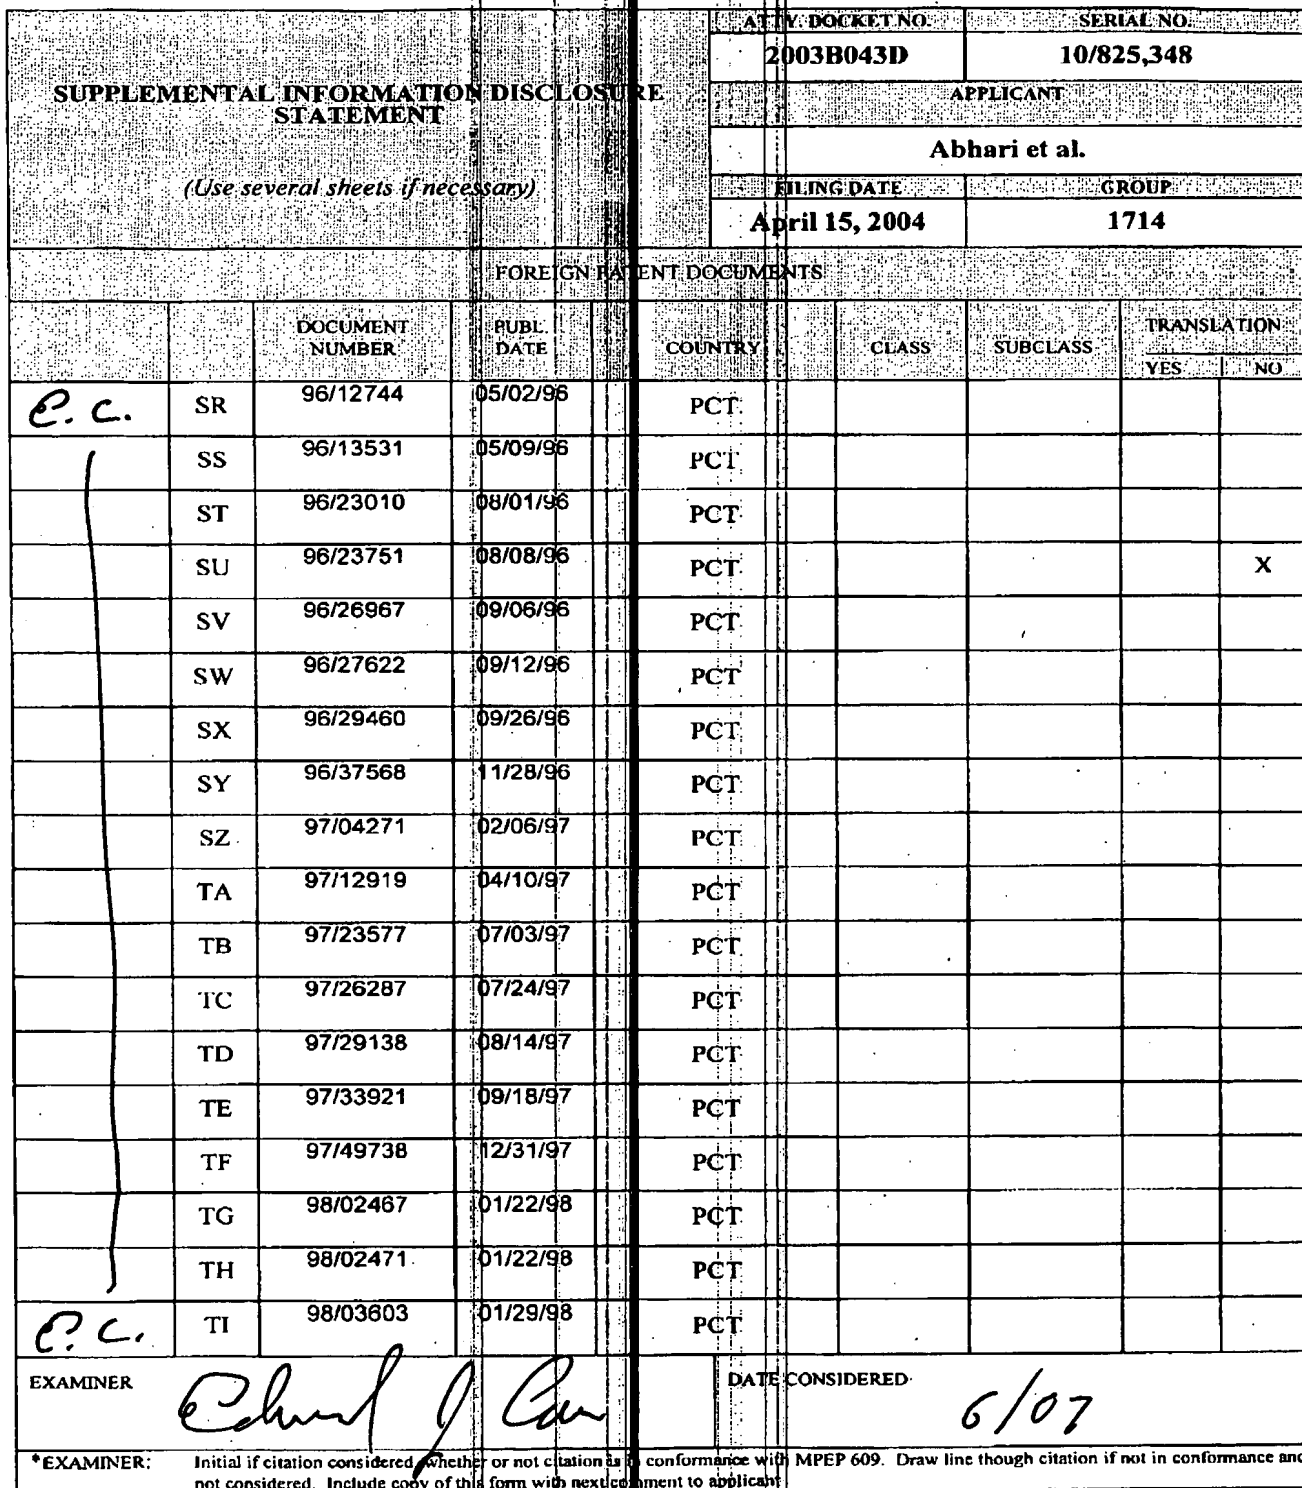 SUPPLEMENTAL INFORMATION DISCLOSURE
STATEMENT
(Use several sheets if necessary)
ATTY. DOCKET NO. SERIAL NO.
2003B043D 10/825,348
APPLICANT
Abhari et al.
FILING DATE GROUP
April 15, 2004 1714
FOREIGN PATENT DOCUMENTS
DOCUMENT NUMBER PUBL. DATE COUNTRY CLASS SUBCLASS TRANSLATION
YES NO
e. c. SR 96/12744 05/02/96 PCT
SS 96/13531 05/09/96 PCT
ST 96/23010 08/01/96 PCT
SU 96/23751 08/08/96 PCT X
SV 96/26967 09/06/96 PCT
SW 96/27622 09/12/96 PCT
SX 96/29460 09/26/96 PCT
SY 96/37568 11/28/96 PCT
SZ 97/04271 02/06/97 PCT
TA 97/12919 04/10/97 PCT
TB 97/23577 07/03/97 PCT
TC 97/26287 07/24/97 PCT
TD 97/29138 08/14/97 PCT
TE 97/33921 09/18/97 PCT
TF 97/49738 12/31/97 PCT
TG 98/02467 01/22/98 PCT
TH 98/02471 01/22/98 PCT
e. c. TI 98/03603 01/29/98 PCT
EXAMINER DATE CONSIDERED 6/07
*EXAMINER: Initial if citation considered, whether or not citation is in conformance with MPEP 609. Draw line though citation if not in conformance and
not considered. Include copy of this form with next comment to applicant